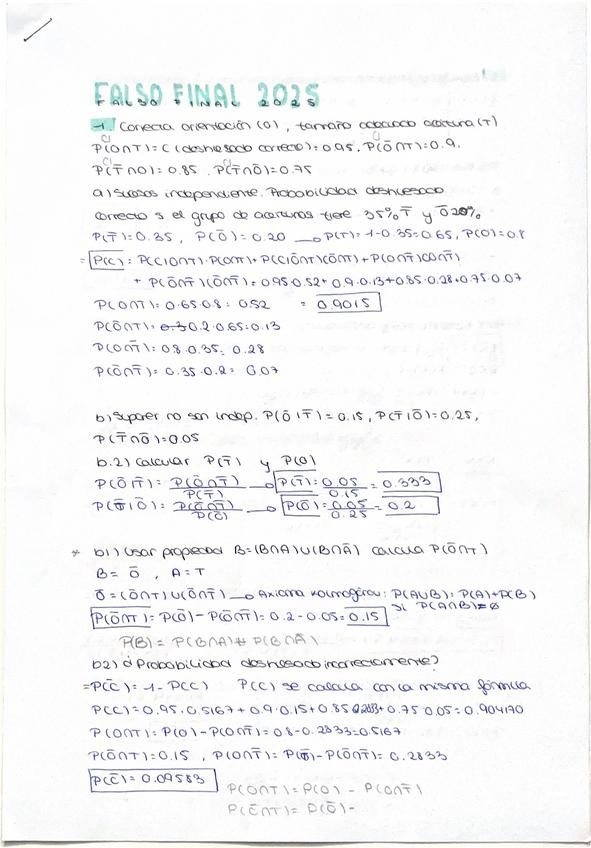 FALSO FINAL 2025
FALSO FINAL 2025
1. Correcta orientación (O), tamaño adecuado aceituna (T)
P(C|O∩T) = C (deshuesado correcto) = 0.95. P(C|Ō∩T) = 0.9.
P(C|T̄∩O) = 0.85. P(C|T̄∩Ō) = 0.75
a) Sucesos independiente. Probabilidad deshuesado
correcto si el grupo de aceitunas tiene 35% T̄ y Ō 20%
P(T̄) = 0.35, P(Ō) = 0.20 → P(T) = 1-0.35 = 0.65, P(O) = 0.8
= P(C) = P(C|O∩T)·P(O∩T) + P(C|Ō∩T)(Ō∩T) + P(O∩T̄)(O∩T̄)
+ P(Ō∩T̄)(Ō∩T̄) = 0.95·0.52 + 0.9·0.13 + 0.85·0.28 + 0.75·0.07
P(O∩T) = 0.65·0.8 = 0.52 = 0.9015
P(Ō∩T) = 0.2·0.65 = 0.13
P(O∩T̄) = 0.8·0.35 = 0.28
P(Ō∩T̄) = 0.35·0.2 = 0.07
b) Suponer no son indep. P(Ō|T̄) = 0.15, P(T̄|Ō) = 0.25,
P(T̄∩Ō) = 0.05
b.2) Calcular P(T̄) y P(Ō)
P(Ō|T̄) = P(Ō∩T̄)/P(T̄) → P(T̄) = 0.05/0.15 = 0.333
P(T̄|Ō) = P(Ō∩T̄)/P(Ō) → P(Ō) = 0.05/0.25 = 0.2
* b1) Usar propiedad B = (B∩A)∪(B∩Ā) calcula P(Ō∩T)
B = Ō, A = T
Ō = (Ō∩T)∪(Ō∩T̄) → Axioma Kolmogórov: P(A∪B) = P(A)+P(B)
si P(A∩B) = ∅
P(Ō∩T) = P(Ō) - P(Ō∩T̄) = 0.2 - 0.05 = 0.15
P(B) = P(B∩A) + P(B∩Ā)
b2) ¿Probabilidad deshuesado incorrectamente?
= P(C̄) = 1 - P(C) P(C) se calcula con la misma fórmula
P(C) = 0.95·0.5167 + 0.9·0.15 + 0.85·0.2833 + 0.75·0.05 = 0.904170
P(O∩T) = P(O) - P(O∩T̄) = 0.8 - 0.2833 = 0.5167
P(Ō∩T) = 0.15, P(O∩T̄) = P(T̄) - P(Ō∩T̄) = 0.2833
P(C̄) = 0.09583
P(O∩T) = P(O) - P(O∩T̄)
P(Ō∩T) = P(Ō) -